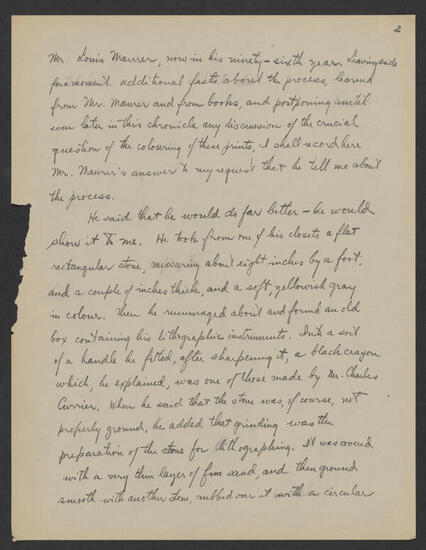 2
Mr. Louis Maurer, now in his ninety-sixth year. Leaving aside
for a moment additional facts about the process, learned
from Mr. Maurer and from books, and postponing until
even later in this chronicle any discussion of the crucial
question of the colouring of these prints, I shall record here
Mr. Maurer's answer to my request that he tell me about
the process.
He said that he would do far better - he would
show it to me. He took from one of his closets a flat
rectangular stone, measuring about eight inches by a foot,
and a couple of inches thick, and a soft, yellowish gray
in colour. Then he rummaged about and found an old
box containing his lithographic instruments. Into a sort
of a handle he fitted, after sharpening it, a black crayon
which, he explained, was one of those made by Mr. Charles
Currier. When he said that the stone was, of course, not
properly ground, he added that grinding was the
preparation of the stone for lithographing. It was covered
with a very thin layer of fine sand, and then ground
smooth with another stone, rubbed over it with a circular